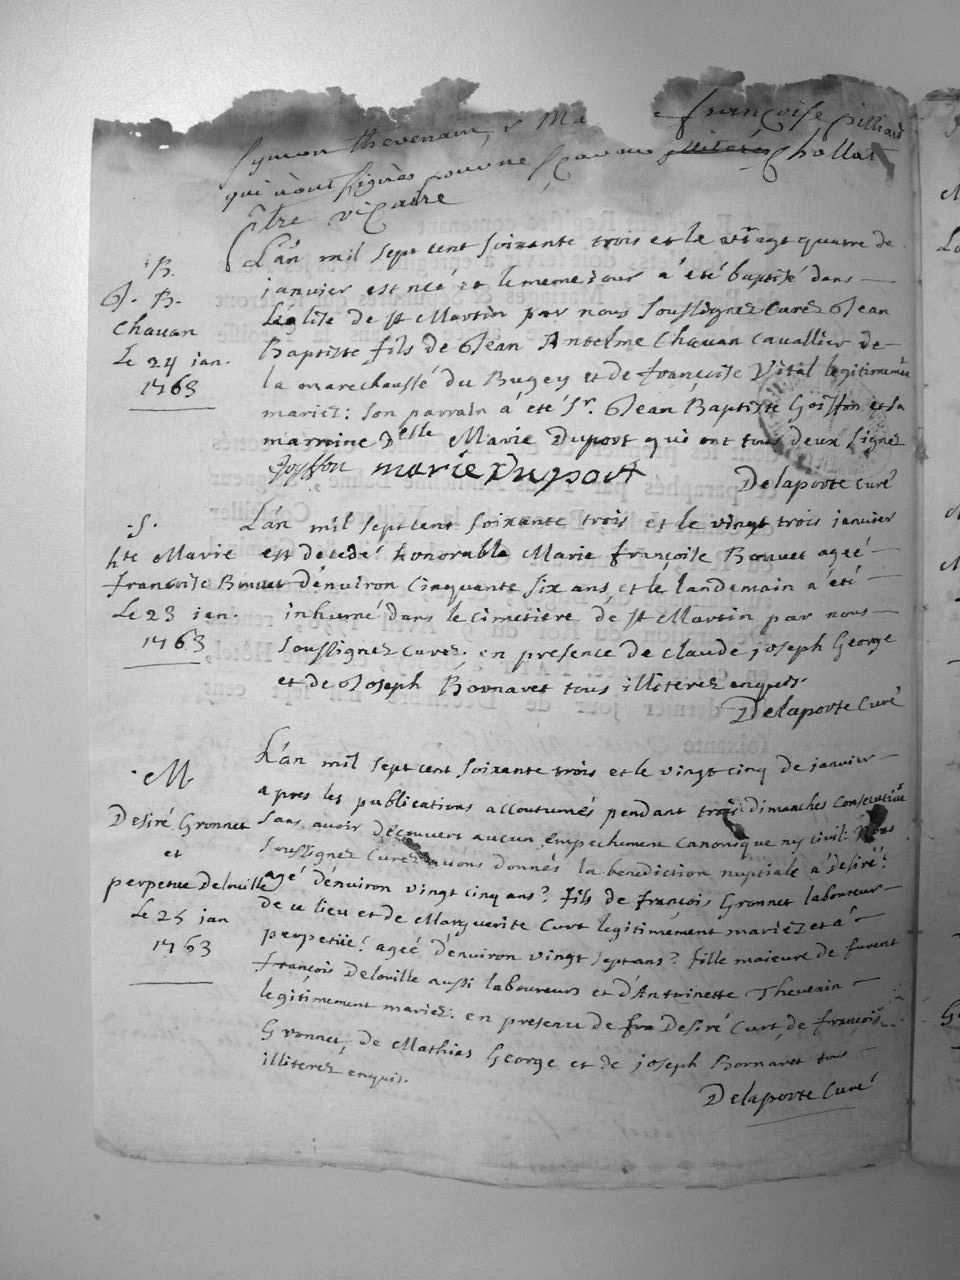 françoise Cilliard
Symon thevenain, & Ma
qui n'ont signés pour ne sçavoir illiteres Chollat
ptre vicaire
B.
J. B.
Chavan
Le 24 jan.
1763
L'an mil sept cent soixante trois et le vingt quatre de
janvier est né et le meme jour a été baptisé dans
léglise de st Martin par nous soussignez curez Jean
Baptiste fils de Jean Antelme Chavan cavallier de
la marechaussé du Bugey et de françoise Vital legitimemen
mariez: son parrain a été Sr. Jean Baptiste Goiffon et sa
marreine Delle Marie Duport qui ont tous deux signez
Goiffon marie Duport
Delaporte curé
.S.
hte Marie
françoise Bonnet
Le 23 jan.
1763
L'an mil sept cent soixante trois et le vingt trois janvier
est decedé honorable Marie françoise Bonnet ageé
d'énviron cinquante six ans, et le landemain a été
inhumé dans le cimetiére de st Martin par nous
soussignez curez. en presence de claude joseph George
et de Joseph Bornavet tous illiterez enquis.
Delaporte curé
.M
Desiré Gronnet
et
perpetue Delouille
Le 25 jan
1763
L'an mil sept cent soixante trois et le vingt cinq de janvier
apres les publications accoutumés pendant trois dimanches consecutive
sans avoir découvert aucun empechement canonique ny civil. Nous
soussignez curez avons donnés la benediction nuptiale a désiré!
agé d'énviron vingt cinq ans? fils de françois Gronnet laboureur
de ce lieu et de Marguerite Curt legitimement mariez et a
perpetüé! ageé d'énviron vingt sept ans? fille majeure de furent
françois Delouille aussi laboureurs et d'Antoinette Thevenin
legitimement mariez. en presence de fra Desiré Curt, de françois
Gronnet, de Mathias George et de joseph Bornavet tous
illiterez enquis.
Delaporte curé